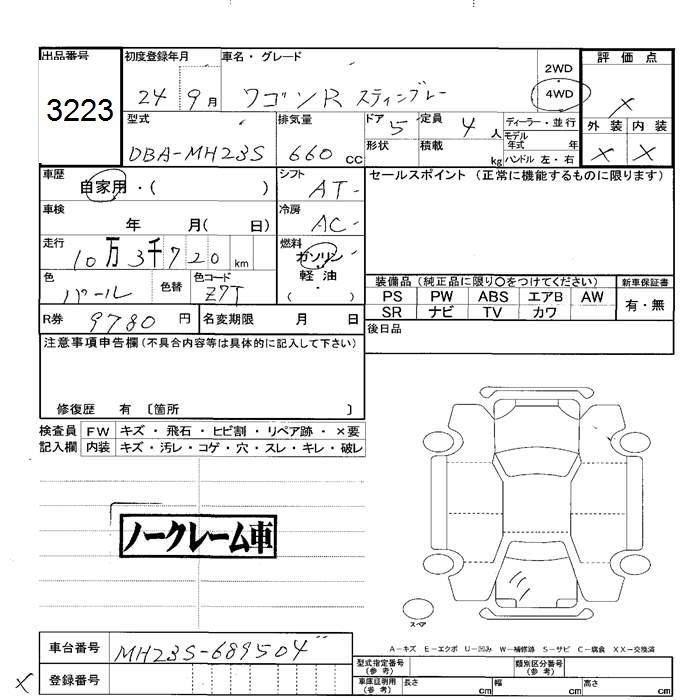 出品番号
3223
初度登録年月
24 9月
車名・グレード
ワゴンR スティングレー
2WD
・
4WD
評価点
×
外装 内装
× ×
型式
DBA-MH23S
排気量
660 cc
ドア 5
形状
定員 4 人
積載 kg
ディーラー・並行
モデル年式 年
ハンドル 左・右
車歴
自家用・( )
シフト
AT-
セールスポイント (正常に機能するものに限ります)
車検
年 月( 日)
冷房
AC-
走行
10万3千720km
燃料
ガソリン
・
軽油
( )
色
パール
色替
色コード
Z7T
装備品 (純正品に限り○をつけてください)
PS PW ABS エアB AW
SR ナビ TV カワ
新車保証書
有・無
R券 9780 円
名変期限 月 日
後日品
注意事項申告欄 (不具合内容等は具体的に記入して下さい)
修復歴 有 〔箇所 〕
検査員記入欄
FW キズ・飛石・ヒビ割・リペア跡・×要
内装 キズ・汚レ・コゲ・穴・スレ・キレ・破レ
ノークレーム車
スペア
A-キズ E-エクボ U-凹み W-補修跡 S-サビ C-腐食 XX-交換済
車台番号 MH23S-689504
登録番号
×
型式指定番号(参考)
類別区分番号(参考)
車庫証明用(参考) 長さ cm 幅 cm 高さ cm